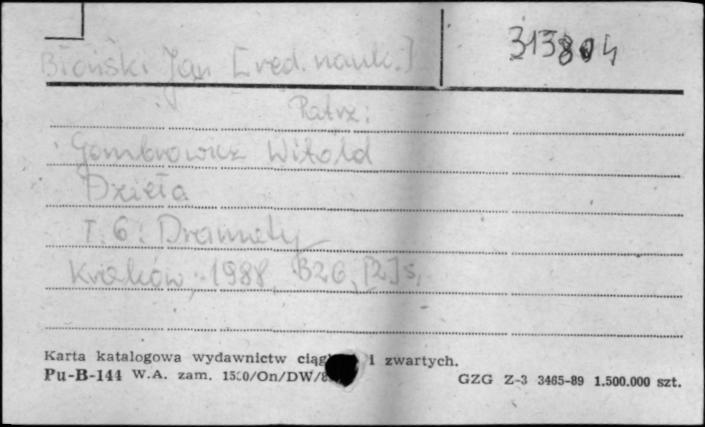 313804
Błoński Jan [red. nauk.]
Patrz:
Gombrowicz Witold
Dzieła
T. 6: Dramaty
Kraków, 1988, 326, [2] s.
Karta katalogowa wydawnictw i zwartych.
Pu-B-144 W.A. zam. GZG Z-3 3465-89 1.500.000 szt.